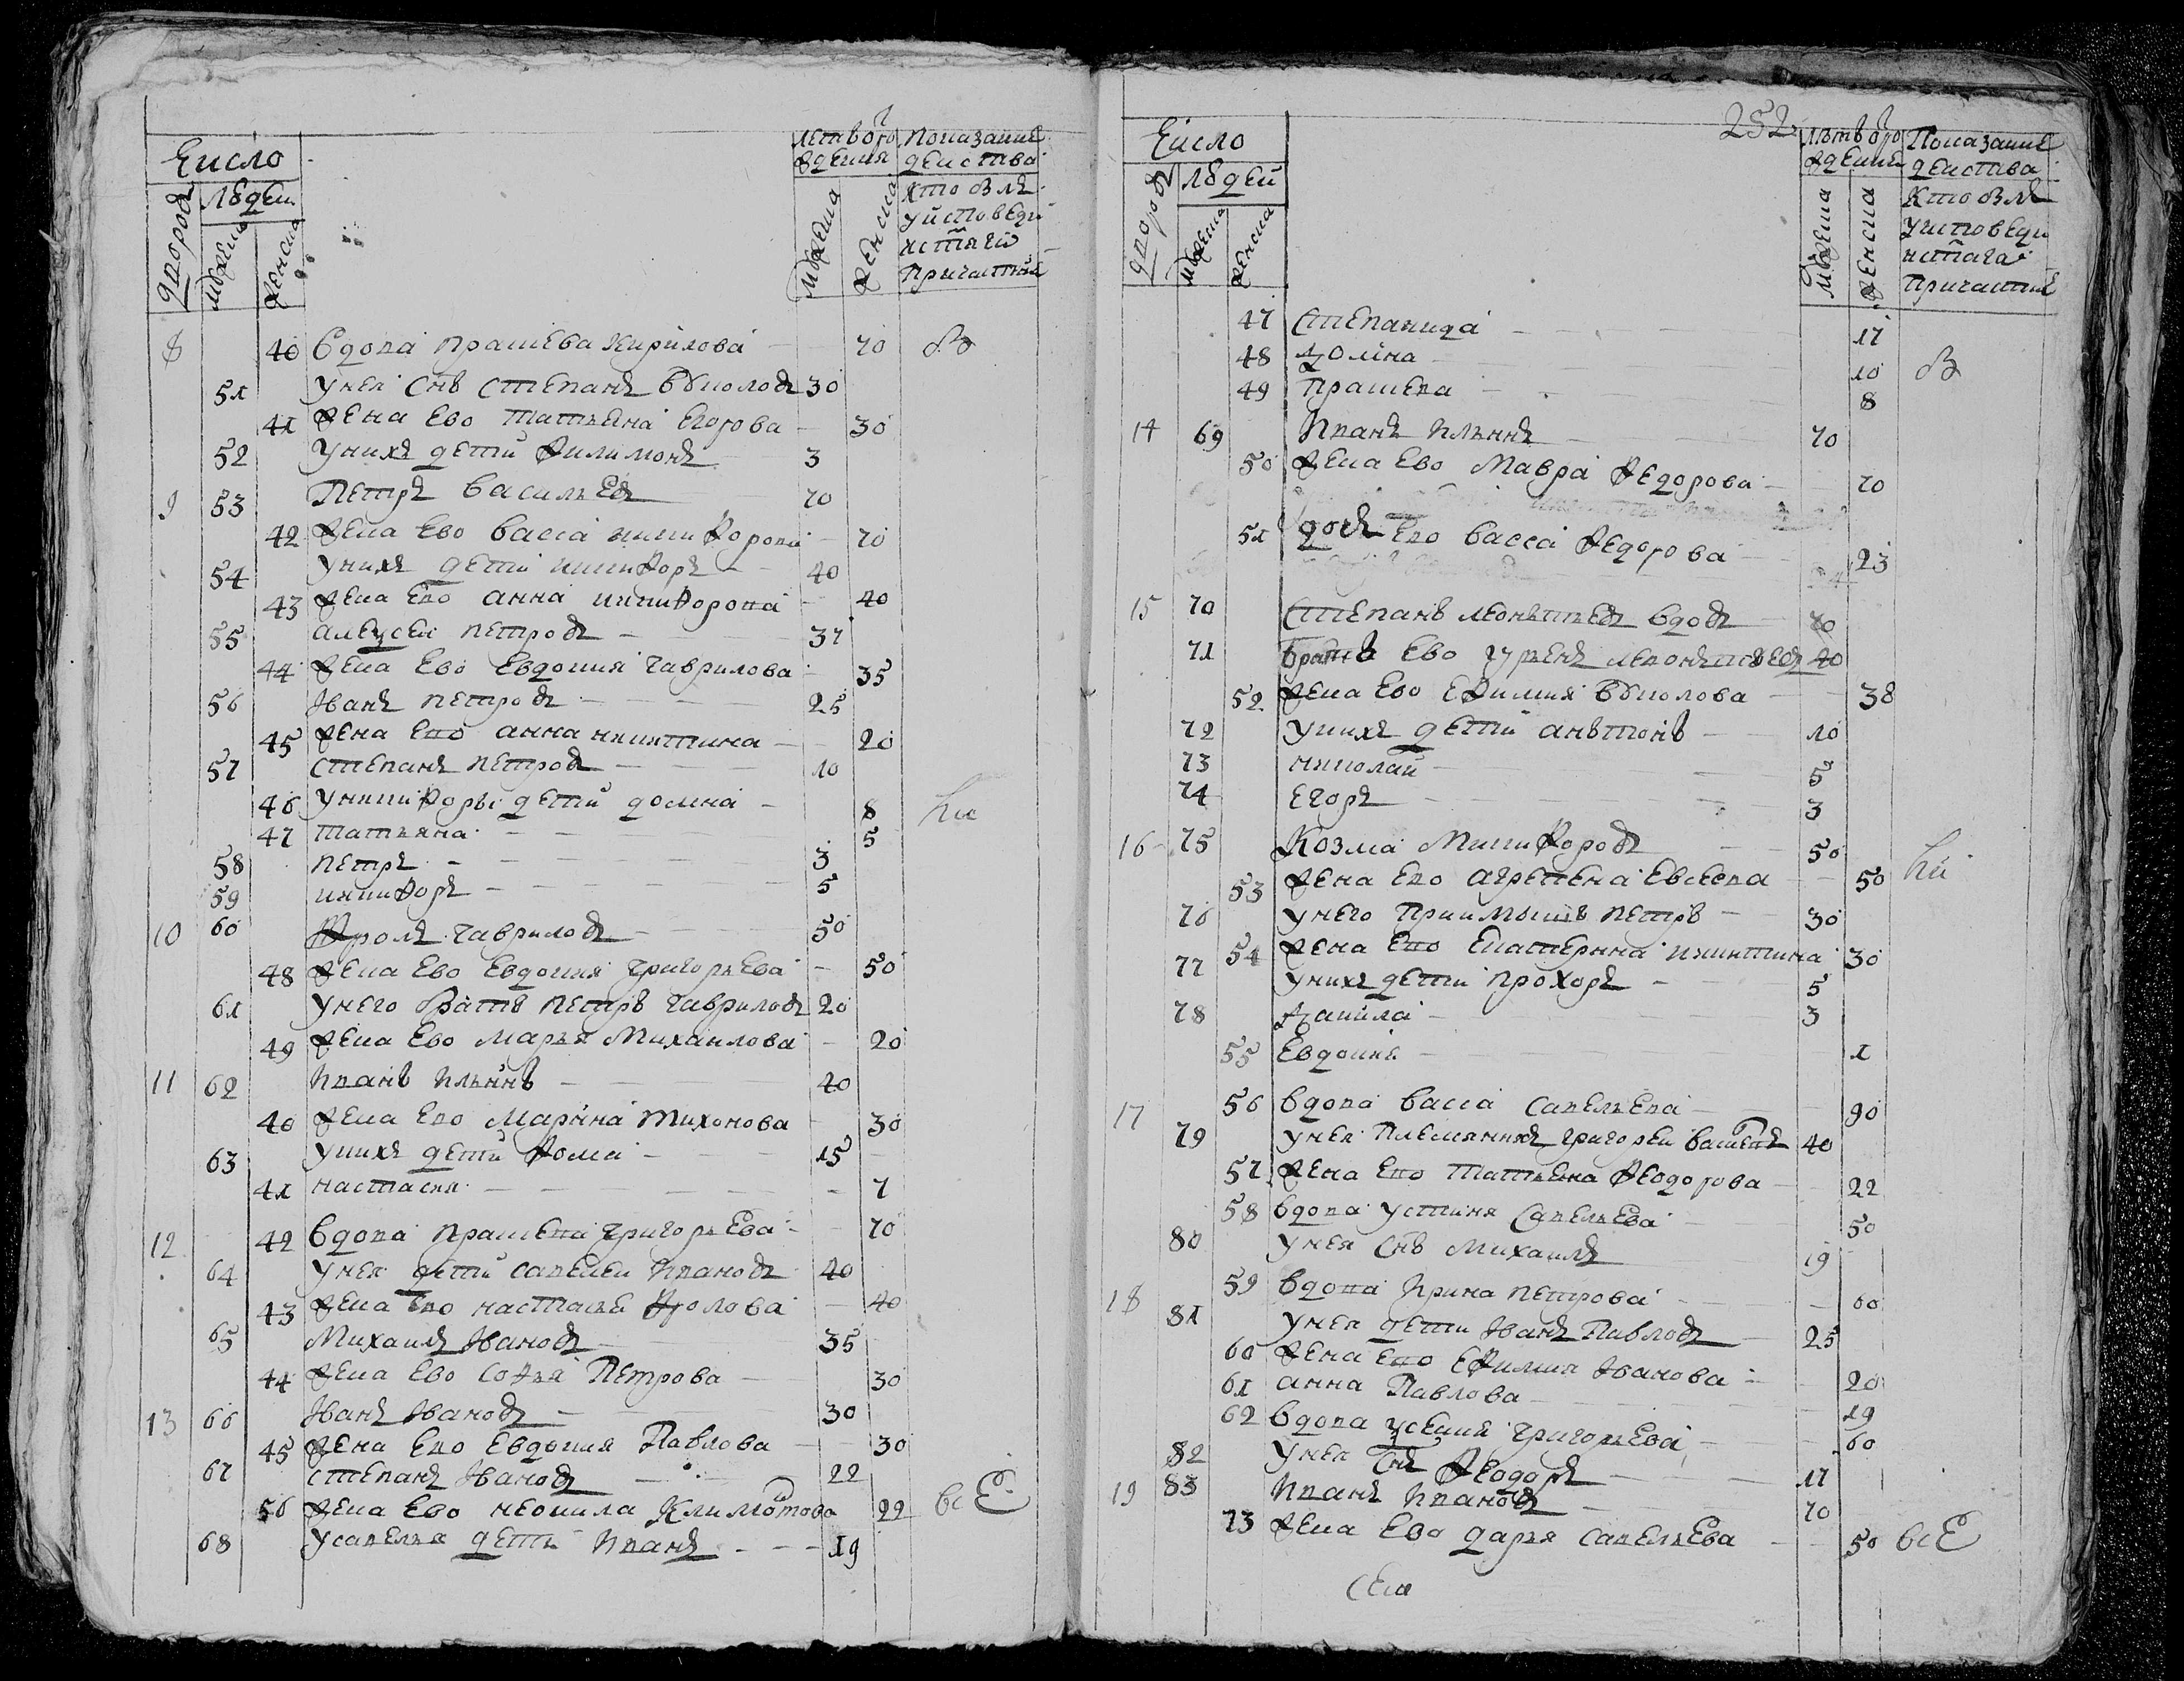 Число
дворовъ
людей
мужеска
женска
летъ от рож
дения
мужеска
женска
Показание
действа
кто былъ
у исповеди
и с�тыхъ
причастия
8 40 вдова прасковя кирилова 70 бы
51 у нея снъ степанъ вуколовъ 30
41 жена ево татьяна егорова 30
52 у нихъ дети филимонъ 3
9 53 Петръ васильевъ 70
42 жена ево васса никифорова 70
54 у нихъ дети никифоръ 40
43 жена ево анна никифорова 40
55 алексеи петровъ 37
44 жена ево евдокия гаврилова 35
56 Иванъ петровъ 25
45 жена ево анна никитина 20
57 степанъ петровъ 10
46 у никифоры дети домна 8 ли
47 татьяна 5
58 петръ 3
59 никифоръ 5
10 60 Фролъ гавриловъ 50
48 жена ево евдокия григорьева 50
61 у него братъ петръ гавриловъ 20
49 жена ево марья михаилова 20
11 62 Иванъ ильинъ 40
40 жена ево марина тихонова 30
63 у нихъ дети фома 15
41 настасья 7
12 42 вдова прасковя григорьева 70
64 у нея дети савелеи ивановъ 40
43 жена ево настасья фролова 40
65 Михаилъ Ивановъ 35
44 жена ево софья Петрова 30
13 66 Иванъ Ивановъ 30
45 жена ево евдокия Павлова 30
67 степанъ Ивановъ 22
56 жена ево неонила Климонтова 22 всЕ
68 у савелья дети иванъ 19
252
Число
дворовъ
людей
мужеска
женска
летъ от рож
дения
мужеска
женска
Показание
действа
кто былъ
у исповеди
причастия
47 степанида 17
48 домна 10 бы
49 прасковя 8
14 69 Иванъ ильинъ 70
50 жена ево мавра федорова 70
51 дочь ево васса федорова 23
15 70 степанъ леонтьевъ вдовъ 70
71 братъ ево гурьенъ леонтьевъ 40
52 жена ево ефимия вуколова 38
72 у нихъ дети антонъ 10
73 николаи 5
74 егоръ 3
16 75 Козма Никифоровъ 50
53 жена ево агрепена евсеева 50 ли
76 у него приимышъ петръ 30
54 жена ево екатерина никитина 30
77 у нихъ дети прохоръ 5
78 данила 3
55 евдокия 1
17 56 вдова васса савельева 90
79 у нея племянникъ григореи 40
57 жена ево татьяна феодорова 22
58 вдова устиня савельева 50
80 у нея снъ михаилъ 19
18 59 вдова ирина петрова 60
81 у нея дети Иванъ Павловъ 25
60 жена ево ефимия Иванова 20
61 анна Павлова 19
62 вдова ксения григорьева 60
82 у нея снъ феодоръ 17
19 83 Иванъ ивановъ 70
73 жена ево дарья савельева 50 всЕ